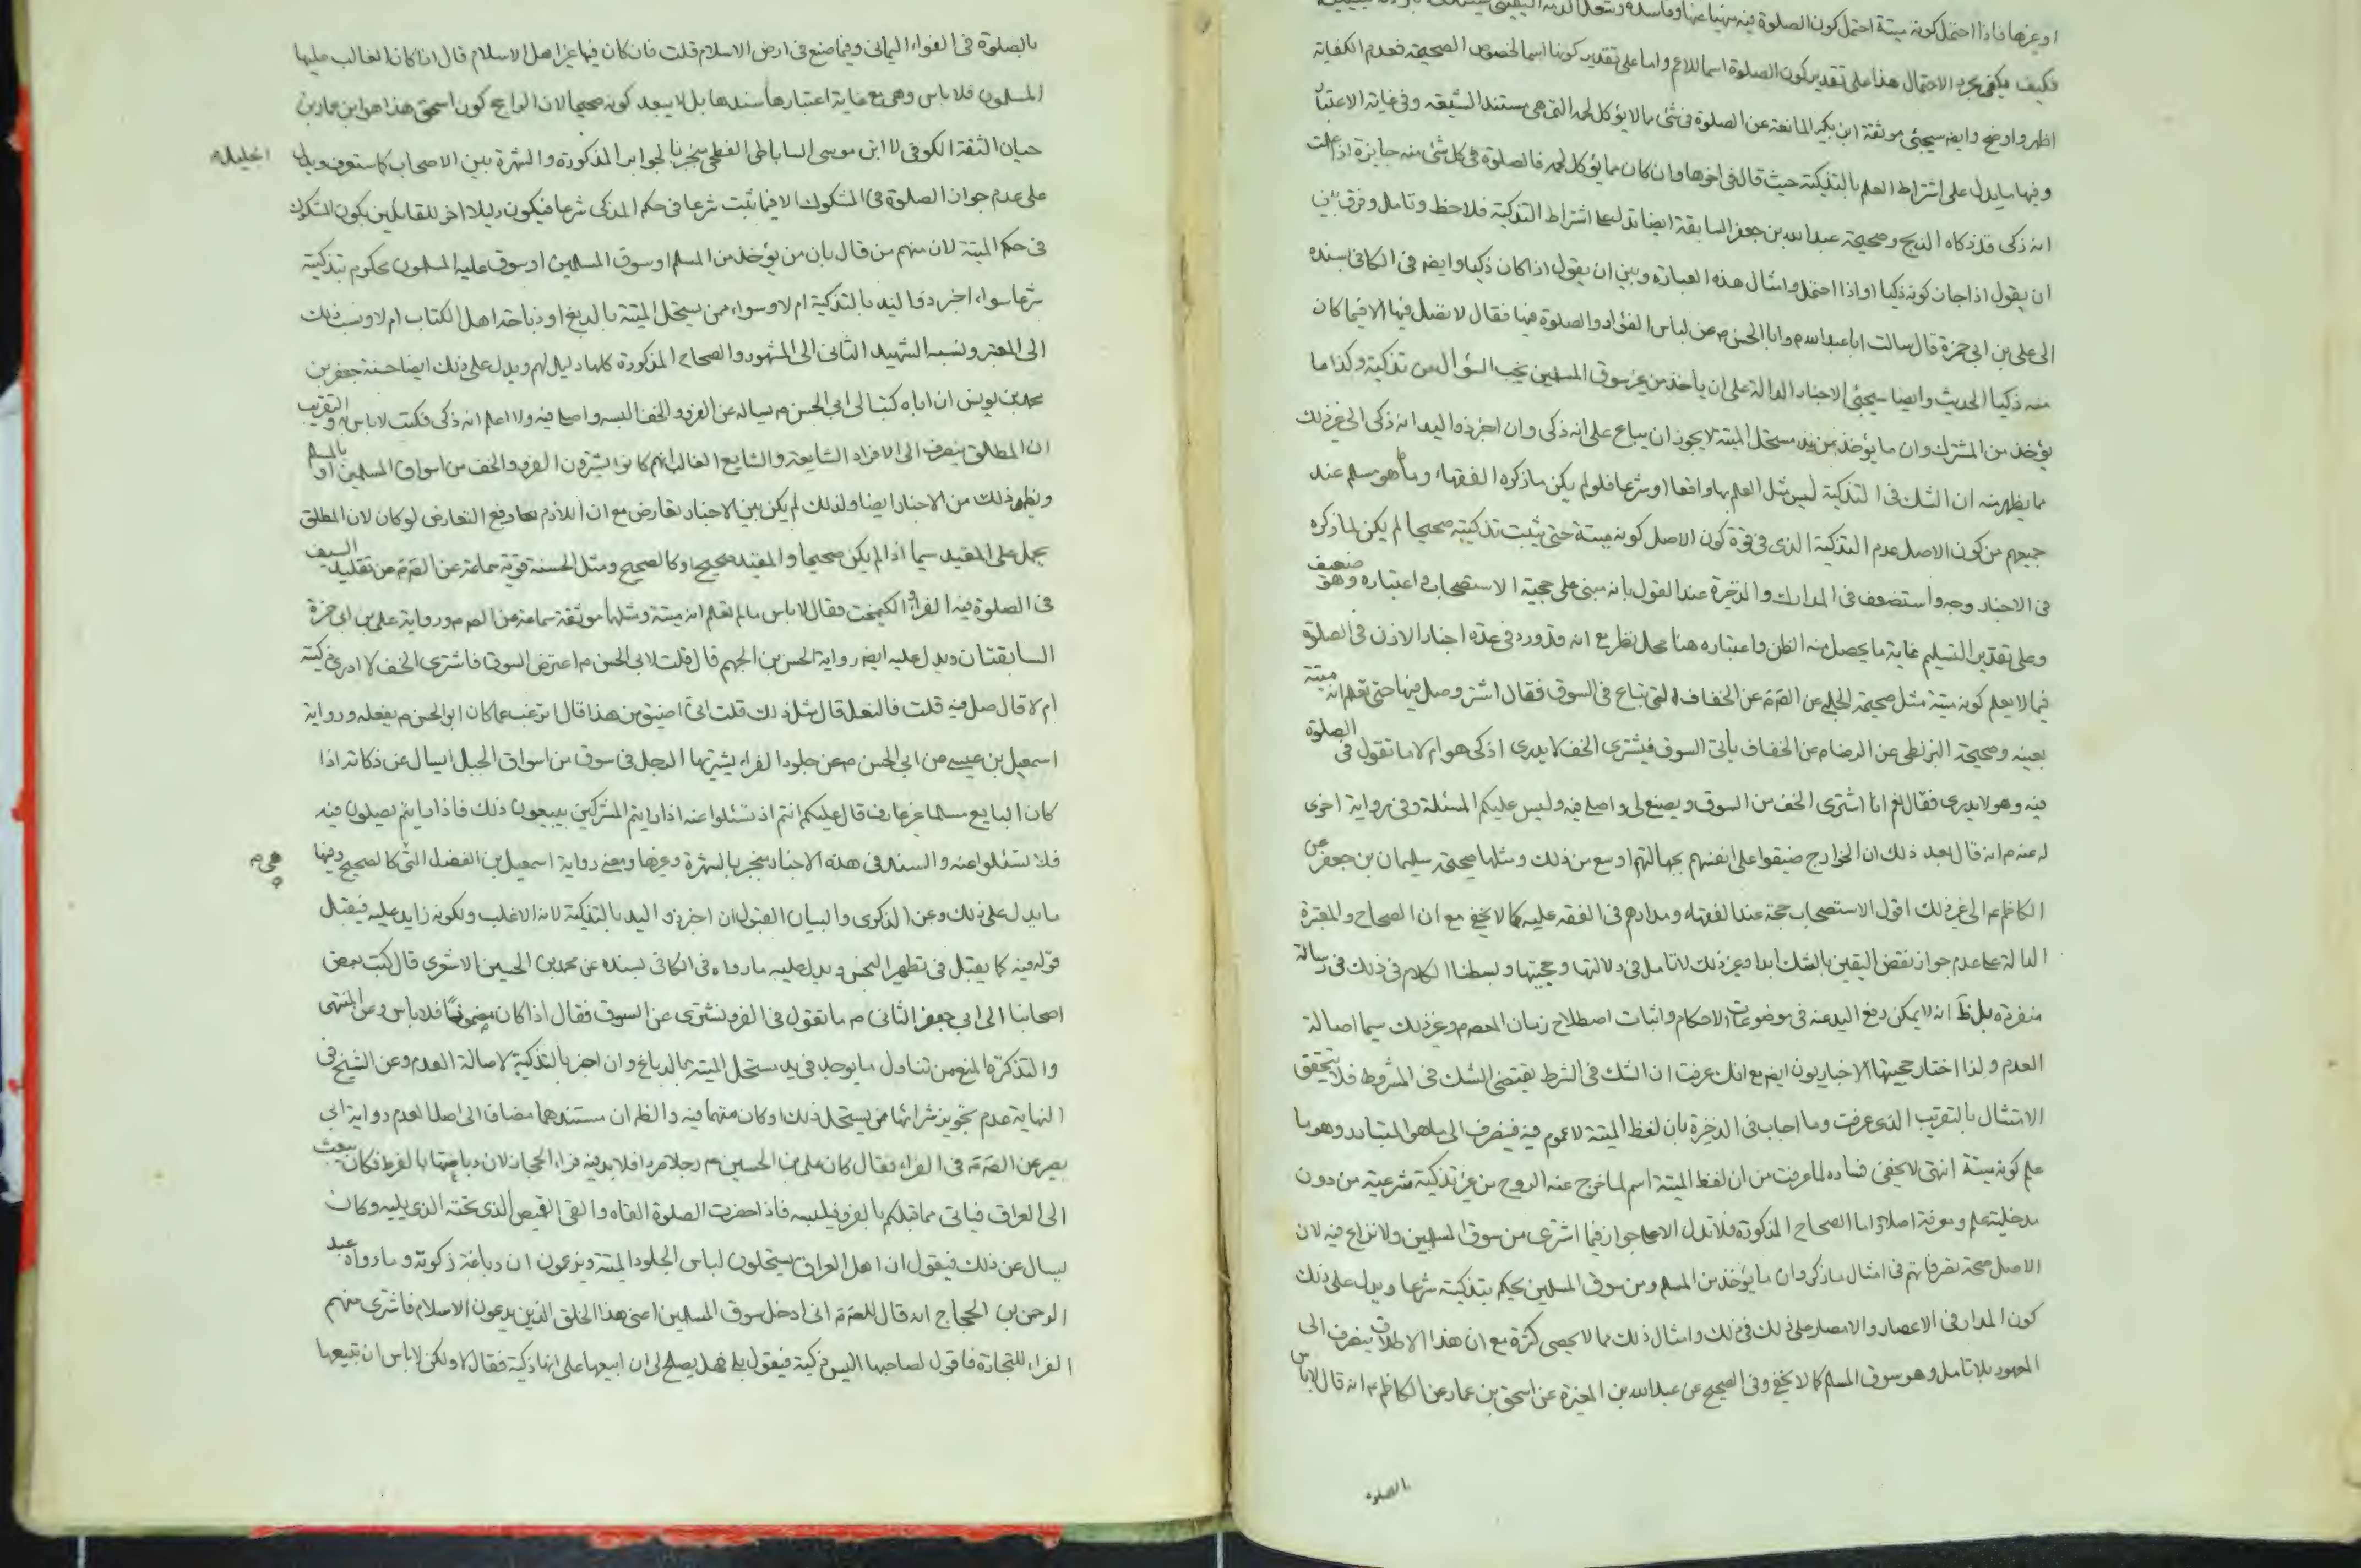 او غيرها فاذا احتمل كونه ميتة احتمل كون الصلوة فيه منهيا عنها وفاسدة وشغل الذمة اليقينى
فكيف يكفى مجرد الاحتمال هذا على تقدير كون الصلوة اسما للاعم واما على تقدير كونها اسما لخصوص الصحيحة فعدم الكفاية
اظهر واوضح وايضه سيجئ موثقة ابن بكير المانعة عن الصلوة فى شئ مما لا يؤكل لحمه التى هى مستند الشيعة وفى غاية الاعتبار
وفيها ما يدل على اشتراط العلم بالتذكية حيث قال فى اخرها وان كان مما يؤكل لحمه فالصلوة فى كل شئ منه جايزة اذا علمت
انه ذكى قد ذكاه الذبح وصحيحة عبد الله بن جعفر السابقة ايضا تدل على اشتراط التذكية فلاحظ وتامل وفرق بين
ان يقول اذا جاز كونه ذكيا او اذا احتمل وامثال هذه العبارة وبين ان يقول اذا كان ذكيا وايضه فى الكافى بسنده
الى على بن ابى حمزة قال سالت ابا عبد الله م وابا الحسن م عن لباس الفراء والصلوة فيها فقال لا تصل فيها الا فيما كان
منه ذكيا الحديث وايضا سيجئ الاخبار الدالة على ان ياخذ من غير سوق المسلمين يجب السؤال عن تذكيته وكذا ما
يؤخذ من المشرك وان ما يؤخذ من يد مستحل الميتة لا يجوز ان يباع على انه ذكى وان اخبر ذو اليد انه ذكى الى غير ذلك
مما يظهر منه ان الشك فى التذكية ليس مثل العلم بها واقعا او شرعا فلو لم يكن ما ذكره الفقهاء وما هو مسلم عند
جميعهم من كون الاصل عدم التذكية الذى فى قوة كون الاصل كونه ميتة حتى يثبت تذكيته صحيحا لم يكن لما ذكره
فى الاخبار وجه واستضعف فى المدارك والذخيرة عند القول بانه مبنى على حجية الاستصحاب واعتباره وهو ضعيف
وعلى تقدير التسليم غاية ما يحصل منه الظن واعتباره هنا محل نظر مع انه قد ورد فى عدة اخبار الاذن فى الصلوة
فيما لا يعلم كونه ميتة مثل صحيحة الحلبى عن الصم عن الخفاف التى تباع فى السوق فقال اشتر وصل فيها حتى تعلم انه ميتة
بعينه وصحيحة البزنطى عن الرضا م عن الخفاف ياتى السوق فيشترى الخف لا يدرى اذكى هو ام لا ما تقول فى الصلوة
فيه وهو لا يدرى فقال نعم انا اشترى الخف من السوق ويصنع لى واصلى فيه وليس عليكم المسئلة وفى رواية اخرى
له عنه م انه قال بعد ذلك ان الخوارج ضيقوا على انفسهم بجهالتهم اوسع من ذلك ومثلها صحيحة سليمان بن جعفر عن
الكاظم م الى غير ذلك اقول الاستصحاب حجة عند الفقهاء ومدارهم فى الفقه عليه كما لا يخفى مع ان الصحاح والمعتبرة
الدالة على عدم جواز نقض اليقين بالشك ابدا وغير ذلك لا تامل فى دلالتها وحجيتها وبسطنا الكلام فى ذلك فى رسالة
منفردة بل ظ انه لا يمكن رفع اليد عنه فى موضوعات الاحكام واثبات اصطلاح زمان المعصوم وغير ذلك سيما اصالة
العدم ولذا اختار حجيتها الاخباريون ايضه مع انك عرفت ان الشك فى الشرط يقتضى الشك فى المشروط فلا يتحقق
الامتثال بالتقريب الذى عرفت وما اجاب فى الذخيرة بان لفظ الميتة لا عموم فيه فينصرف الى ما هو المتبادر وهو ما
علم كونه ميتة انتهى لا يخفى فساده لما عرفت من ان لفظ الميتة اسم لما خرج عنه الروح من غير تذكية شرعية من دون
مدخلية علم ومعرفة اصلا واما الصحاح المذكورة فلا تدل الا على جواز فيما اشترى من سوق المسلمين ولا نزاع فيه لان
الاصل صحة تصرفاتهم فى امثال ما ذكر وان ما يؤخذ من المسلم ومن سوق المسلمين يحكم بتذكيته شرعا ويدل على ذلك
كون المدار فى الاعصار والامصار على ذلك فى ذلك وامثال ذلك مما لا يحصى كثرة مع ان هذا الاطلاق ينصرف الى
المعهود بلا تامل وهو سوق المسلم كما لا يخفى وفى الصحيح عن عبد الله بن المغيرة عن اسحق بن عمار عن الكاظم م انه قال لا باس
بالصلوة
بالصلوة فى الفراء اليمانى وفيما صنع فى ارض الاسلام قلت فان كان فيها غير اهل الاسلام قال اذا كان الغالب عليها
المسلمون فلا باس وهى مع غاية اعتبارها سندها بل لا يبعد كونه صحيحا لان الراجح كون اسحق هذا هو ابن عمار بن
حيان الثقة الكوفى لا ابن موسى الساباطى الفطحى ينجبر بالجوابر المذكورة والشهرة بين الاصحاب كما ستعرف ويدل
على عدم جواز الصلوة فى المشكوك الا فيما ثبت شرعا فى حكم المذكى شرعا فيكون دليلا اخر للقائلين بكون المشكوك
فى حكم الميتة لان منهم من قال بان من يؤخذ من المسلم او سوق المسلمين او سوق عليه المسلمون محكوم بتذكيته
شرعا سواء اخبر ذو اليد بالتذكية ام لا وسواء ممن يستحل الميتة بالدبغ او ذباحة اهل الكتاب ام لا ونسب ذلك
الى المعتبر ونسبه الشهيد الثانى الى المشهور والصحاح المذكورة كلها دليل لهم ويدل على ذلك ايضا حسنة جعفر بن
محمد بن يونس ان اباه كتب الى ابى الحسن م يساله عن الفرو والخف البسه واصلى فيه ولا اعلم انه ذكى فكتب لا باس به والتقريب
ان المطلق ينصرف الى الافراد الشايعة والشايع الغالب انهم كانوا يشترون الفرو والخف من اسواق المسلمين او بالمسلم
ويظهر ذلك من الاخبار ايضا ولذلك لم يكن بين الاخبار تعارض مع ان اللازم رفع التعارض لو كان لان المطلق
يحمل على المقيد سيما اذا لم يكن صحيحا والمقيد صحيح او كالصحيح ومثل الحسنة قوية سماعة عن الصم عن تقليد السيف
فى الصلوة فيه الفراء والكيمخت فقال لا باس ما لم تعلم انه ميتة ومثلها موثقة سماعة عن الصم ورواية على بن ابى حمزة
السابقتان ويدل عليه ايضه رواية الحسن بن الجهم قال قلت لابى الحسن م اعترض السوق فاشترى الخف لا ادرى ذكية
ام لا قال صل فيه قلت فالنعل قال مثل ذلك قلت انى اضيق من هذا قال اترغب عما كان ابو الحسن م يفعله ورواية
اسمعيل بن عيسى عن ابى الحسن م عن جلود الفراء يشتريها الرجل فى سوق من اسواق الجبل ايسال عن ذكاته اذا
كان البايع مسلما غير عارف قال عليكم انتم ان تسئلوا عنه اذا رايتم المشركين يبيعون ذلك فاذا رايتم يصلون فيه
فلا تسئلوا عنه والسند فى هذه الاخبار منجبر بالشهرة وغيرها ومعنى رواية اسمعيل بن الفضل التى كالصحيح وفيها
ما يدل على ذلك وعن الذكرى والبيان القبول ان اخبر ذو اليد بالتذكية لانه الاغلب ولكونه زايد عليه فيقبل
قوله فيه كما يقبل فى تطهير النجس ويدل عليه ما رواه فى الكافى بسنده عن محمد بن الحسين الاشعرى قال كتب بعض
اصحابنا الى ابى جعفر الثانى م ما تقول فى الفرو نشترى عن السوق فقال اذا كان مضمونا فلا باس وعن المنتهى
والتذكرة المنع من تناول ما يوجد فى يد مستحل الميتة بالدباغ وان اخبر بالتذكية لاصالة العدم وعن الشيخ فى
النهاية عدم تجويز شرائها ممن يستحل ذلك او كان متهما فيه والظ ان مستندهما مضاف الى اصل العدم رواية ابى
بصير عن الصم فى الفراء فقال كان على بن الحسين م رجلا صردا فلا يدفئه فراء الحجاز لان دباغتها بالقرظ فكان يبعث
الى العراق فياتى مما قبلكم بالفرو فيلبسه فاذا حضرت الصلوة القاه والقى القميص الذى تحته الذى يليه وكان
يسال عن ذلك فيقول ان اهل العراق يستحلون لباس الجلود الميتة ويزعمون ان دباغه ذكوته وما رواه عبد
الرحمن بن الحجاج انه قال للصم انى ادخل سوق المسلمين اعنى هذا الخلق الذين يدعون الاسلام فاشترى منهم
الفراء للتجارة فاقول لصاحبها اليس ذكية فيقول بلى فهل يصلح لى ان ابيعها على انها ذكية فقال لا ولكن لا باس ان تبيعها